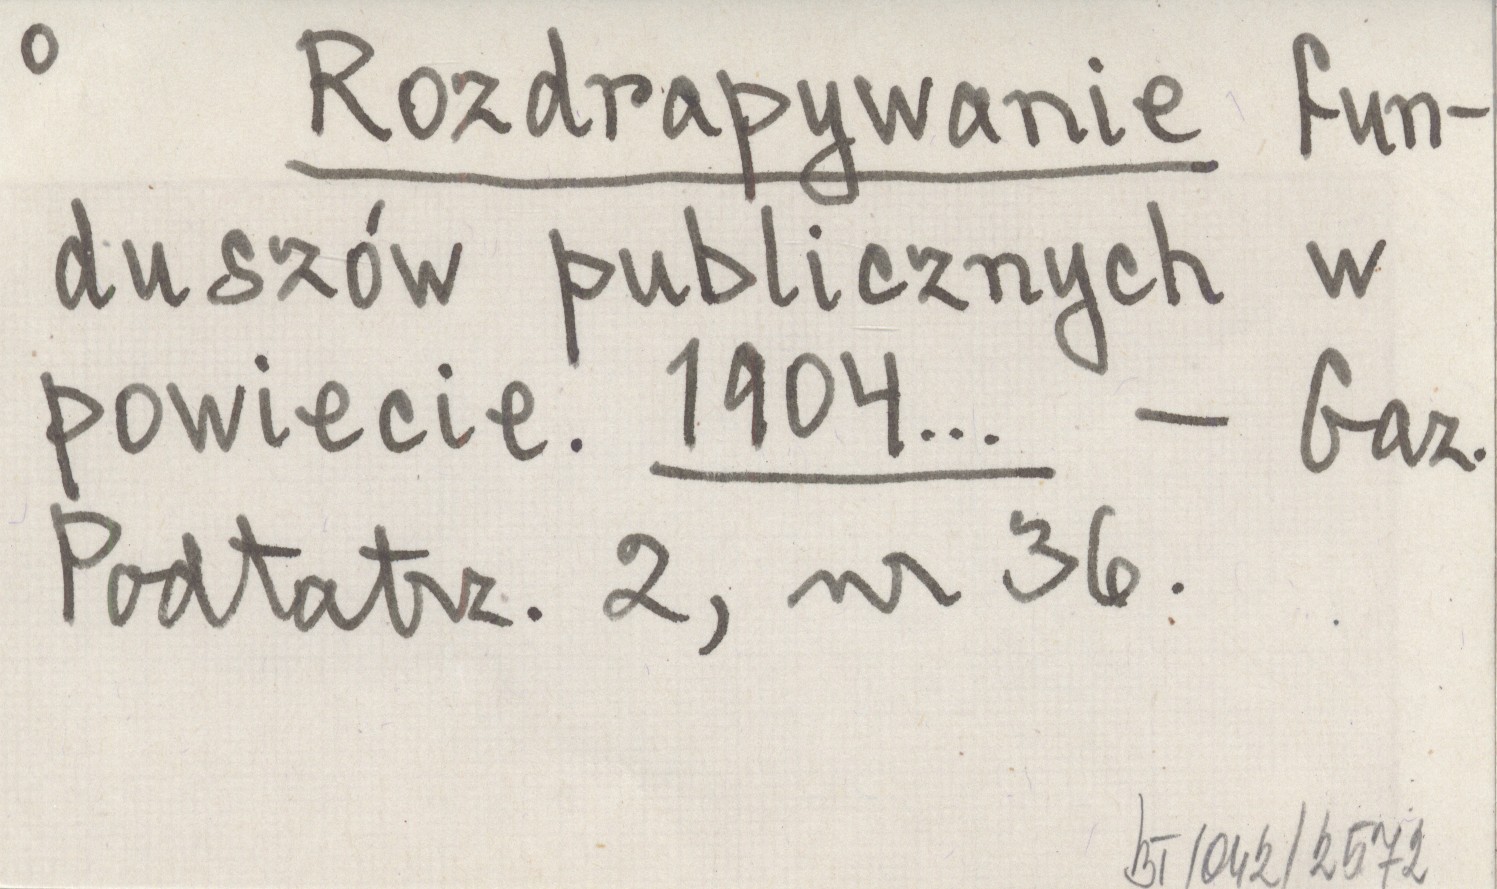 o Rozdrapywanie fun-
duszów publicznych w
powiecie. 1904... — Gaz.
Podtatrz. 2, nr 36.
BT/042/2572